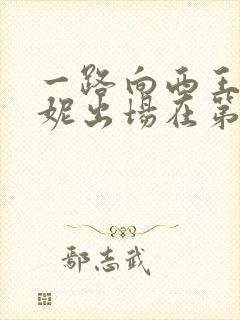 一路向西王
妮出場在第
鄢志武